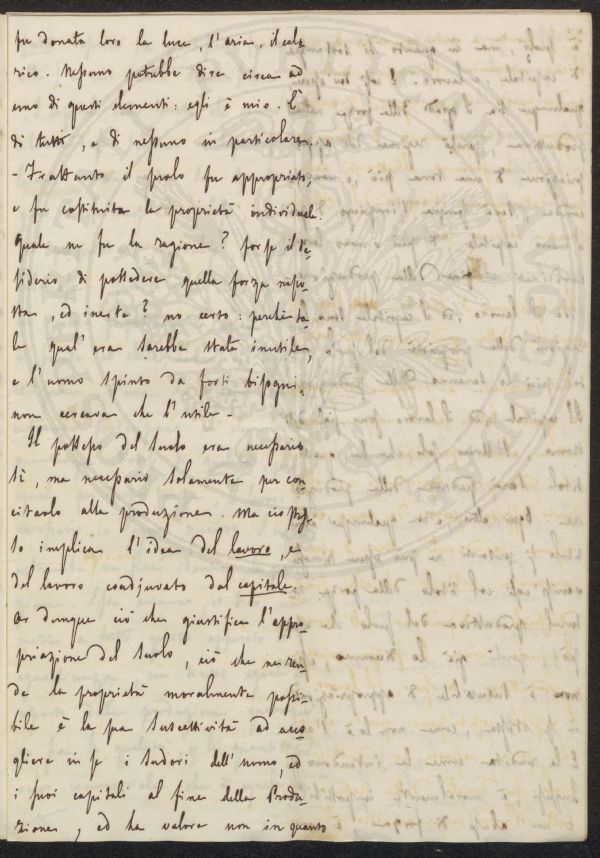 fu donata loro la luce, l'aria, il calo-
rico. Nessuno potrebbe dire circa ad
uno di questi elementi: egli è mio. È
di tutti, e di nessuno in particolare.
- Frattanto il suolo fu appropriato,
e fu costituita la proprietà individuale.
Quale ne fu la ragione? forse il de-
siderio di possedere quella forza nipo-
sta, ed inerte? no certo: perchè ta-
le qual'era sarebbe stata inutile,
e l'uomo spinto da forti bisogni,
non cercava che l'utile -
Il possesso del suolo era necessario
sì, ma necessario solamente per con-
citarlo alla produzione. Ma ciò stes-
so implica l'idea del lavoro, e
del lavoro coadjuvato dal capitale.
Or dunque ciò che giustifica l'appro-
priazione del suolo, ciò che ne ren-
de la proprietà moralmente possi-
bile è la sua suscettività ad acco-
gliere in se i sudori dell'uomo, ed
i suoi capitali al fine della Produ-
zione, ed ha valore non in quanto